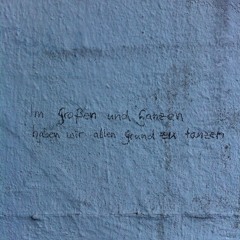 Im Großen und Ganzen
haben wir allen Grund zu tanzen